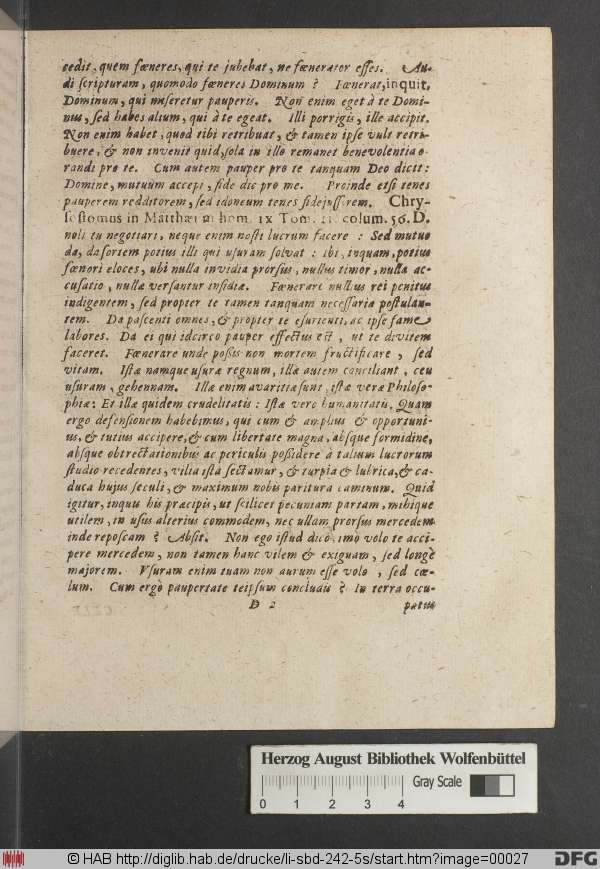 cedit, quem fœneres, qui te jubebat, ne fœnerator esses. Au-
di scripturam, quomodo fœneres Dominum? Fœnerat, inquit,
Dominum, qui miseretur pauperis. Non enim eget à te Domi-
nus, sed habes alium, qui à te egeat. Illi porrigis, ille accipit.
Non enim habet, quod tibi retribuat, & tamen ipse vult retri-
buere, & non invenit quid, sola in illo remanet benevolentia o-
randi pro te. Cum autem pauper pro te tanquam Deo dicit:
Domine, mutuum accepi, fide dic pro me. Proinde etsi tenes
pauperem redditorem, sed idoneum tenes fidejussorem. Chry-
sostomus in Matthæum hom. IX Tom. II. colum. 56. D.
noli tu negotiari, neque enim nosti lucrum facere: Sed mutuo
da, da sortem potius illi qui usuram solvat: Ibi, inquam, potius
fœnori eloces, ubi nulla invidia prorsus, nullus timor, nulla ac-
cusatio, nullæ versantur insidiæ. Fœnerare nullius rei penitus
indigentem, sed propter te tamen tanquam necessaria postulan-
tem. Da pascenti omnes, & propter te esurienti, ac ipse fame
labores. Da ei qui idcirco pauper effectus est, ut te divitem
faceret. Fœnerare unde possis non mortem fructificare, sed
vitam. Istæ namque usuræ regnum, illæ autem conciliant, ceu
usuram, gehennam. Illæ enim avaritiæ sunt, istæ veræ Philoso-
phiæ: Et illæ quidem crudelitatis: Istæ vero humanitatis. Quam
ergo defensionem habebimus, qui cum & amplius & opportuni-
us, & tutius accipere, & cum libertate magna, absque formidine,
absque obtrectationibus ac periculis possidere à talium lucrorum
studio recedentes, vilia ista sectamur, & turpia & lubrica, & ca-
duca hujus seculi, & maximum nobis paritura caminum. Quid
igitur, inquis his præcipis, ut scilicet pecuniam partam, mihique
utilem, in usus alterius commodem, nec ullam prorsus mercedem
inde reposcam? Absit. Non ego istud dico, imò volo te acci-
pere mercedem, non tamen hanc vilem & exiguam, sed longè
majorem. Vsuram enim tuam non aurum esse volo, sed cœ-
lum. Cum ergò paupertate teipsum concludis? In terra occu-
D 2 patus
Herzog August Bibliothek Wolfenbüttel
Gray Scale
0 1 2 3 4
© HAB http://diglib.hab.de/drucke/li-sbd-242-5s/start.htm?image=00027
DFG